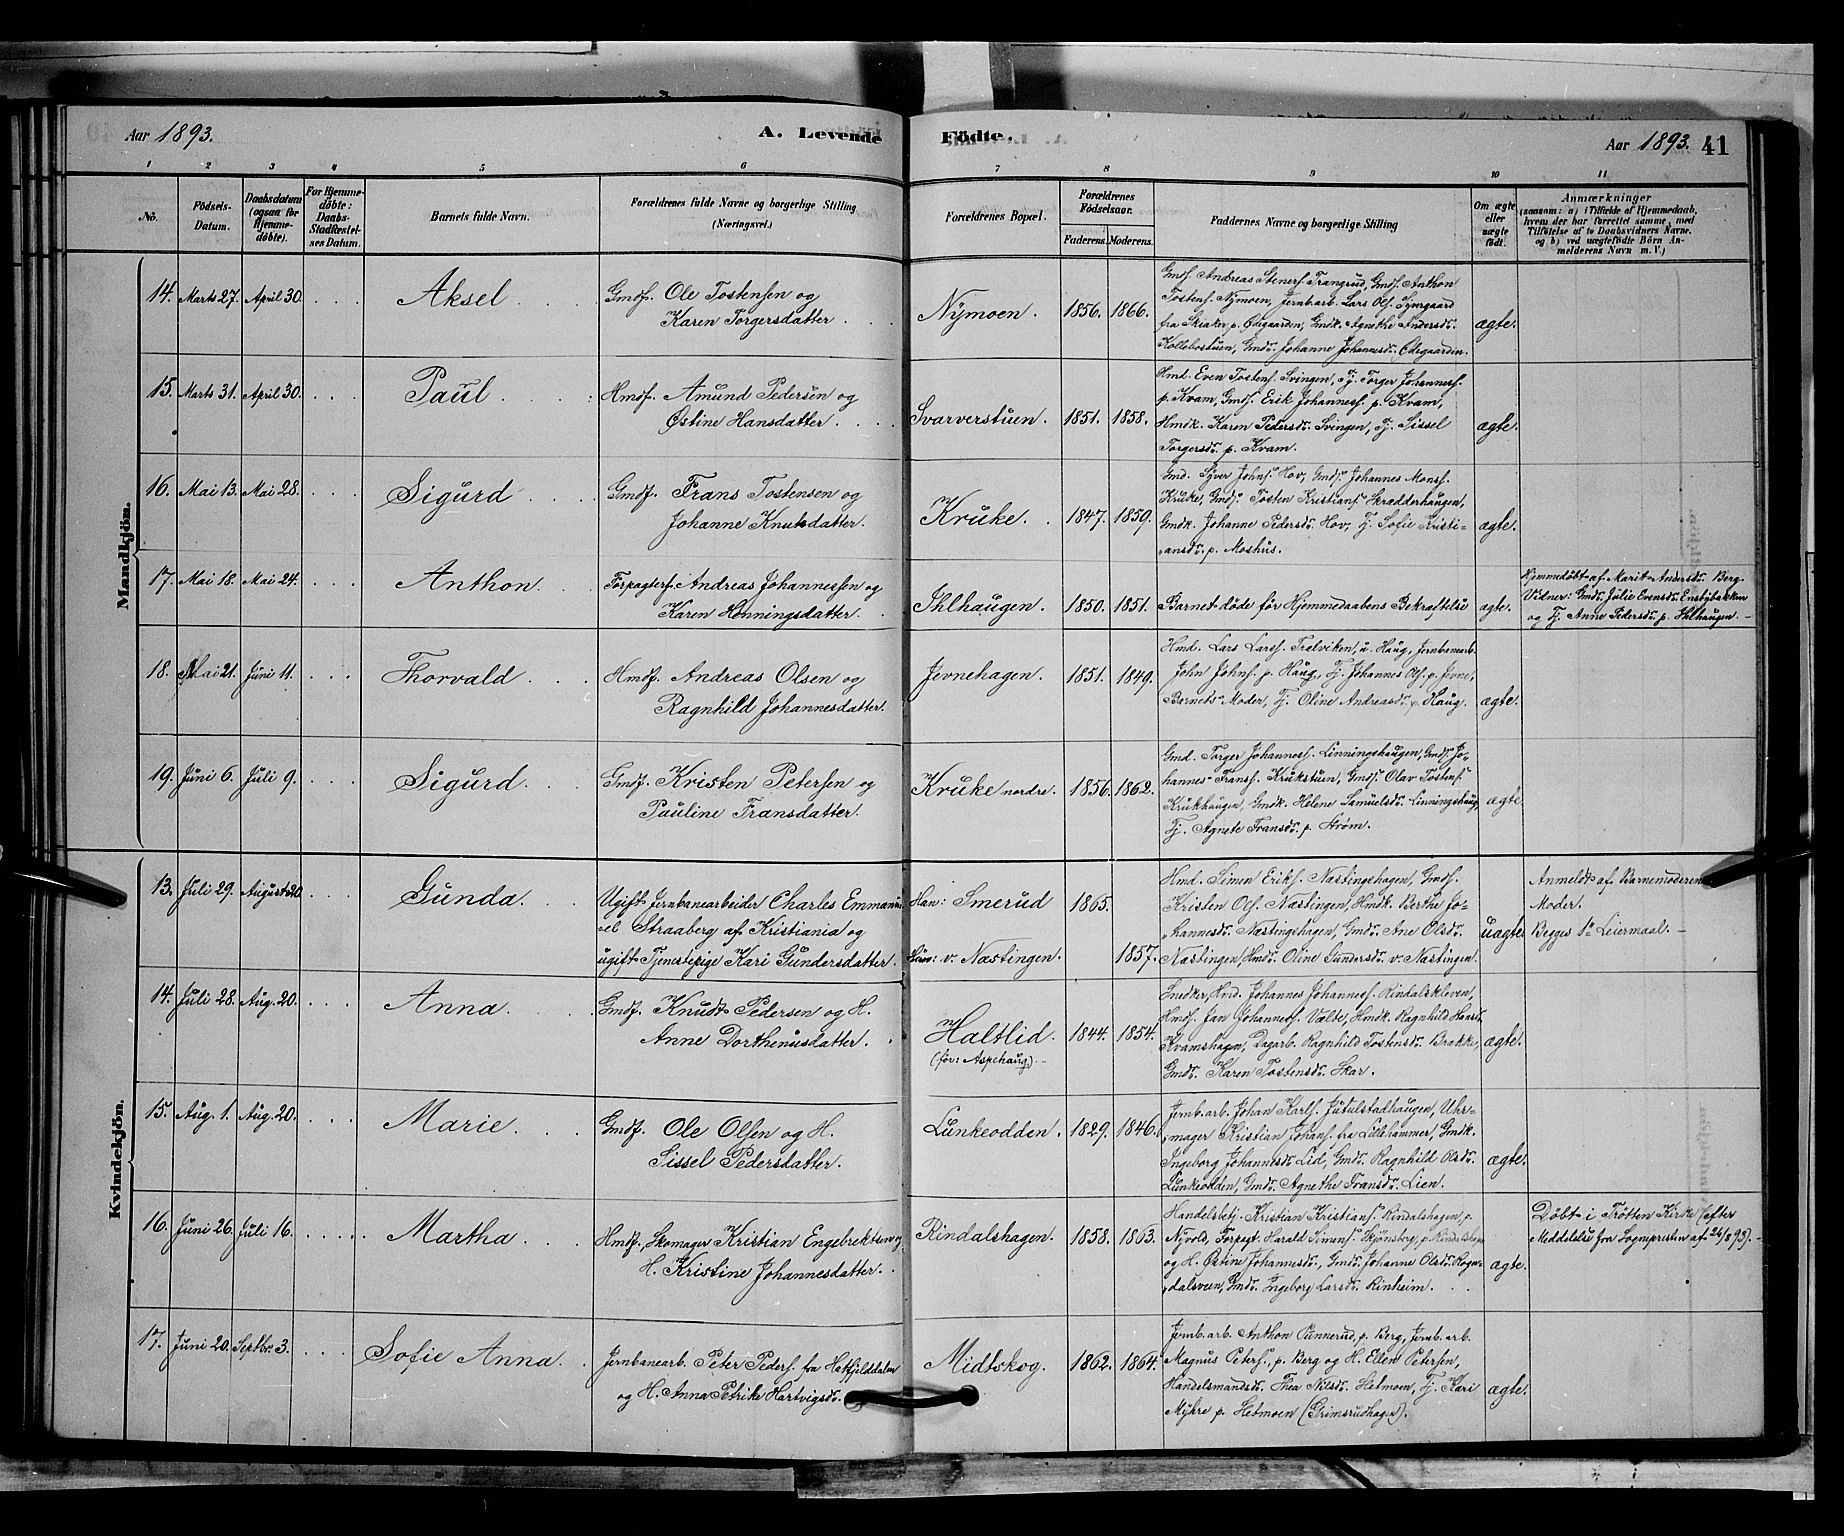 Aar 1893.
A. Levende
Födte.
Aar 1893. 41
1 2 3 4 5 6 7 8 9 10 11
No.
Födsels-
Datum.
Daabsdatum
(ogsaa for
Hjemme-
döbte).
For Hjemme-
döbte:
Daabs-
Stadfæstel-
ses Datum.
Barnets fulde Navn.
Forældrenes fulde Navne og borgerlige Stilling
(Næringsvei.)
Forældrenes Bopæl.
Forældrenes
Fødselsaar.
Faderens. Moderens.
Faddernes Navne og borgerlige Stilling
Om ægte
eller
uægte
født.
Anmærkninger
(saasom: a) i Tilfælde af Hjemmedaab,
hvem der har forrettet samme, med
Tilföielse af to Daabsvidners Navne.
og b) ved uægtefödte Börn An-
melderens Navn m. V.)
Mandkjön.
14. Marts 27. April 30. Aksel
Gmdf. Ole Tostensen og
Karen Torgersdatter.
Nymoen. 1856. 1866.
Gmdf. Andreas Steners. Trangrud, Gmdf. Anthon
Tostens. Nymoen, Jernb.arb. Lars Ols.
fra Skiaker p. Ødegaarden, Gmdk. Agnethe Andersdr.
Kollebostuen, Gmds. Johanne Johannesdr. Ødegaarden.
ægte.
15. Marts 31. April 30. Paul
Hmdf. Amund Pedersen og
Østine Hansdatter.
Svarverstuen. 1851. 1858.
Hmd. Even Tostens. Svingen, Tj. Torger Johanness.
p. Kvam, Gmds. Erik Johanness. p. Kvam,
Hmdk. Karen Pedersdr. Svingen, Tj. Sissel
Torgersdr. p. Kvam.
ægte.
16. Mai 13. Mai 28. Sigurd
Gmdf. Frans Tostensen og
Johanne Knutsdatter.
Kruke. 1847. 1859.
Gmd. Syver Johns. Hov, Gmds. Johannes Monss.
Kruke, Gmds. Tosten Kristians. Skradderhaugen,
Gmdk. Johanne Pedersdr. Hov, Tj. Sofie Kristi-
ansdr. p. Moshus.
ægte.
17. Mai 18. Mai 24. Anthon.
Forpagterf. Andreas Johannessen og
Karen Henningsdatter.
Ihlhaugen. 1850. 1851.
Barnet døde før Hjemmedaabens Bekræftelse
ægte.
Hjemmedøbt af Marit Andersdr. Berg.
Vidner: Gmds. Julie Evensdr. Ensbybakken
og Tj. Anne Pedersdr. p. Ihlhaugen.
18. Mai 21. Juni 11. Thorvald
Hmdf. Andreas Olsen og
Ragnhild Johannesdatter.
Jevnehagen. 1851. 1849.
Hmd. Lars Larss. Trelviken, u. Haug, Jernbanearb.
John Johns. p. Haug, Tj. Johannes Ols. p. Jevne,
Barnets Moder, Tj. Oline Andreasdr. p. Haug.
ægte.
19. Juni 6. Juli 9. Sigurd
Gmdf. Kristen Petersen og
Pauline Fransdatter.
Kruke nordre. 1856. 1862.
Gmd. Torger Johanness. Linningshaugen, Gmds. Jo-
hannes Franss. Krukstuen, Gmds. Olav Tostens.
Krukhaugen, Gmdk. Helene Samuelsdr. Linningshaug,
Tj. Agnete Fransdr. p. Strøm.
ægte
Kvindekjön.
13. Juli 29. August 20 Gunda
Ugift Jernbanearbeider Charles Emmanu-
el Straaberg af Kristiania og
ugift Tjenestepige Kari Gundersdatter.
Han: Smerud 1865.
Hun: v. Næstingen. 1857.
Hmd. Simen Eriks. Næstingshagen, Gmds.
Kristen Ols. Næstingen, Hmdk. Berthe Jo-
hannesdr. Næstingshagen, Gmds. Ane Olsdr.
Næstingen, Hmds. Oline Gundersdr. v. Næstingen.
uægte
Anmeldt af Barnemoderens
Moder.
Begges 1ste Leiermaal.
14. Juli 28. Aug. 20. Anna
Gmdf. Knudt Pedersen og H.
Anne Dorthenusdatter.
Haltlid. 1844. 1854.
(før: Aspehaug)
Snedker, Hmd. Johannes Johanness. Rindalskleven,
Hmds. Jan Johanness. Vælte, Hmdk. Ragnhild Hansdr.
Kvamshagen, Dagarb. Ragnhild Tostensdr. Brakke,
Gmds. Karen Tostensdr. Skar.
ægte.
15. Aug. 1. Aug. 20. Marie
Gmdf. Ole Olsen og H.
Sissel Pedersdatter.
Lunkeodden. 1829. 1846.
Jernb.arb. Johan Karls. Jutulstadhaugen, Uhr-
mager Kristian Johans. fra Lillehammer, Gmdk.
Ingeborg Johannesdr. Lid, Gmds. Ragnhild Olsdr.
Lunkeodden, Gmds. Agnethe Fransdr. Lien.
ægte.
16. Juni 26. Juli 16. Martha
Hmdf., Skomager Kristian Engebretsen og
H. Kristine Johannesdatter.
Rindalshagen. 1858. 1863.
Handelsbetj. Kristian Kristians. Rindalshagen, p.
Nyvold, Forpagt. Harald Simens. Skjønsberg, p. Rindalshagen
og H. Østine Johannesdr., Gmds. Johanne Olsdr. Rogn-
dalsveen, Gmds. Ingeborg Larsdr. Rinheim.
ægte.
Døbt i Trøtten Kirke (efter
Meddelelse fra Sognepresten af 24/8 93).
17. Juni 20. Septbr. 3. Sofie Anna.
Jernbanearb. Peter Peders. fra Hatfjelddalen
og H. Anna Petrike Hartvigsdr.
Midtskog. 1862. 1864.
Jernb.arb. Anthon Punnerud, p. Berg, Jernb.arb.
Magnus Peters., p. Berg og H. Ellen Petersen,
Handelsmands. Thea Nilsdr. Hetmoen, Tj. Kari
Myhre p. Hetmoen (Grimsrudhagen).
ægte.